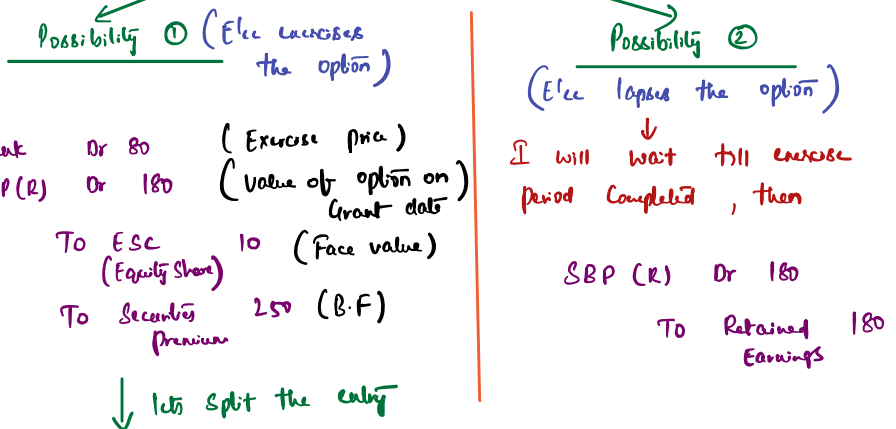 Possibility ① (E'ee exercises
the option)
Dr 80 (Exercise price)
P(R) Dr 180 (Value of option on
Grant date)
To ESC 10 (Face value)
(Equity Share)
To Securities 250 (B.F)
Premium
lets split the entry
Possibility ②
(E'ee lapses the option)
I will wait till exercise
period Completed, then
SBP (R) Dr 180
To Retained 180
Earnings